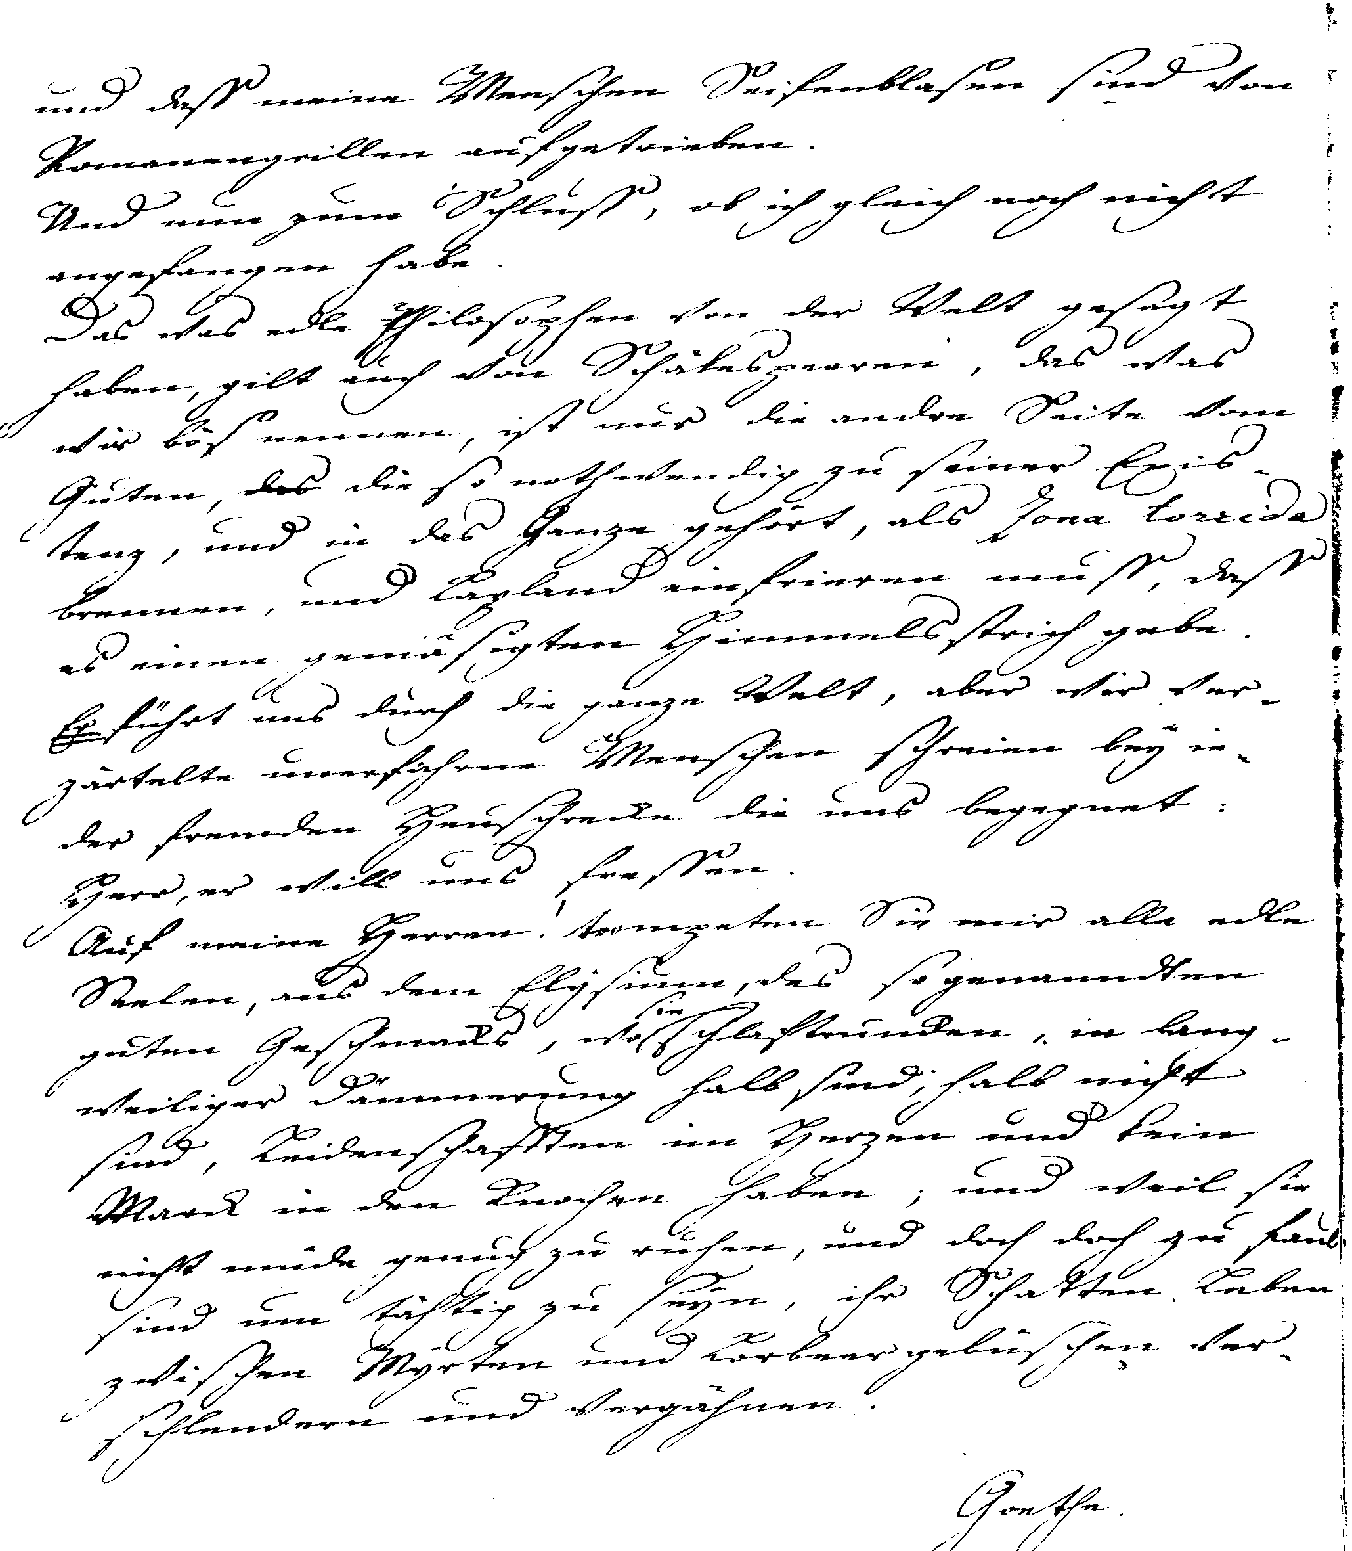 und dass meine Menschen Seifenblasen sind von
Romanengrillen aufgetrieben.
Und nun zum Schluss, ob ich gleich noch nicht
angefangen habe.
Das was edle Philosophen von der Welt gesagt
haben, gilt auch von Schäkespearen, das was
wir bös nennen, ist nur die andre Seite vom
Guten, des die so nothwendig zu seiner Exis-
tenz, und in das Ganze gehört, als Zona torrida
brennen, und Lapland einfrieren muss, dass
es einen gemäsigten Himmelsstrich gebe.
Er führt uns durch die ganze Welt, aber wir ver-
zärtelte unerfahrne Menschen schreien bey ie-
der fremden Heuschrecke die uns begegnet:
Herr, er will uns fressen.
Auf meine Herren! trompeten Sie mir alle edle
Seelen, aus dem Elysium, des sogenanndten
guten Geschmacks, wo sie schlaftrunken, in lang-
weiliger Dämmerung halb sind, halb nicht
sind, Leidenschafften im Herzen und kein
Marck in den Knochen haben; und weil sie
nicht müde genug zu ruhen, und doch doch zu faul
sind um tähtig zu seyn, ihr Schatten Leben
zwischen Myrten und Lorbeergebüschen ver-
schlendern und vergähnen.
Goethe.